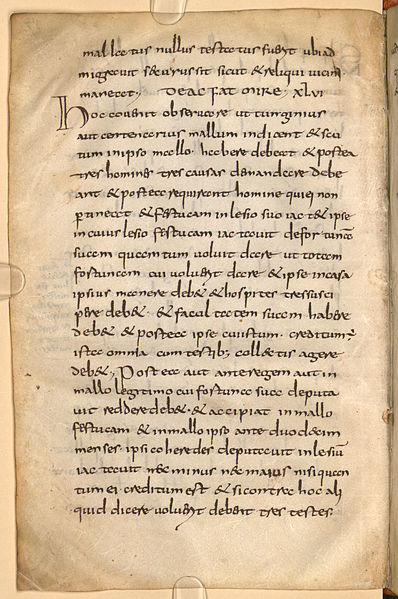 mallatus nullus testatus fuerit ubi ad
migavit securus sit sicut & reliqui vicini
maneat. DE ACFATMIRE. XLVI
Hoc convenit observare ut tunginius
aut centenarius mallum indicent & scu
tum in ipso mallo. habere debent & postea
tres homines tres causas demandare debe
ant & postea requirant homine qui ei non
p̱tineat & festucam in lesio suo iactet & ipse
in cuius lesio festucam iactavit de fortunā
suam quantum voluit dare ut totam
fortunam cui voluerit dare & ipse in casa
ipsius manere deb& & hospites tres susci
pere deb&. & facultatem suam habere
deb& & postea ipse cui istum. creditum ÷
ista omnia cum testib; collectis agere
deb&; Postea aut ante regem aut in
mallo legitimo cui fortunam sua deputa
vit reddere deb&. & accipiat in mallo
festucam & in mallo ipso ante duodecim
menses. ipsi coheredes deputavit in lesiū
iactavit nec minus nec maius nisi quan
tum ei creditum est & si contra hoc ali
quid dicere voluerit debent tres testes.